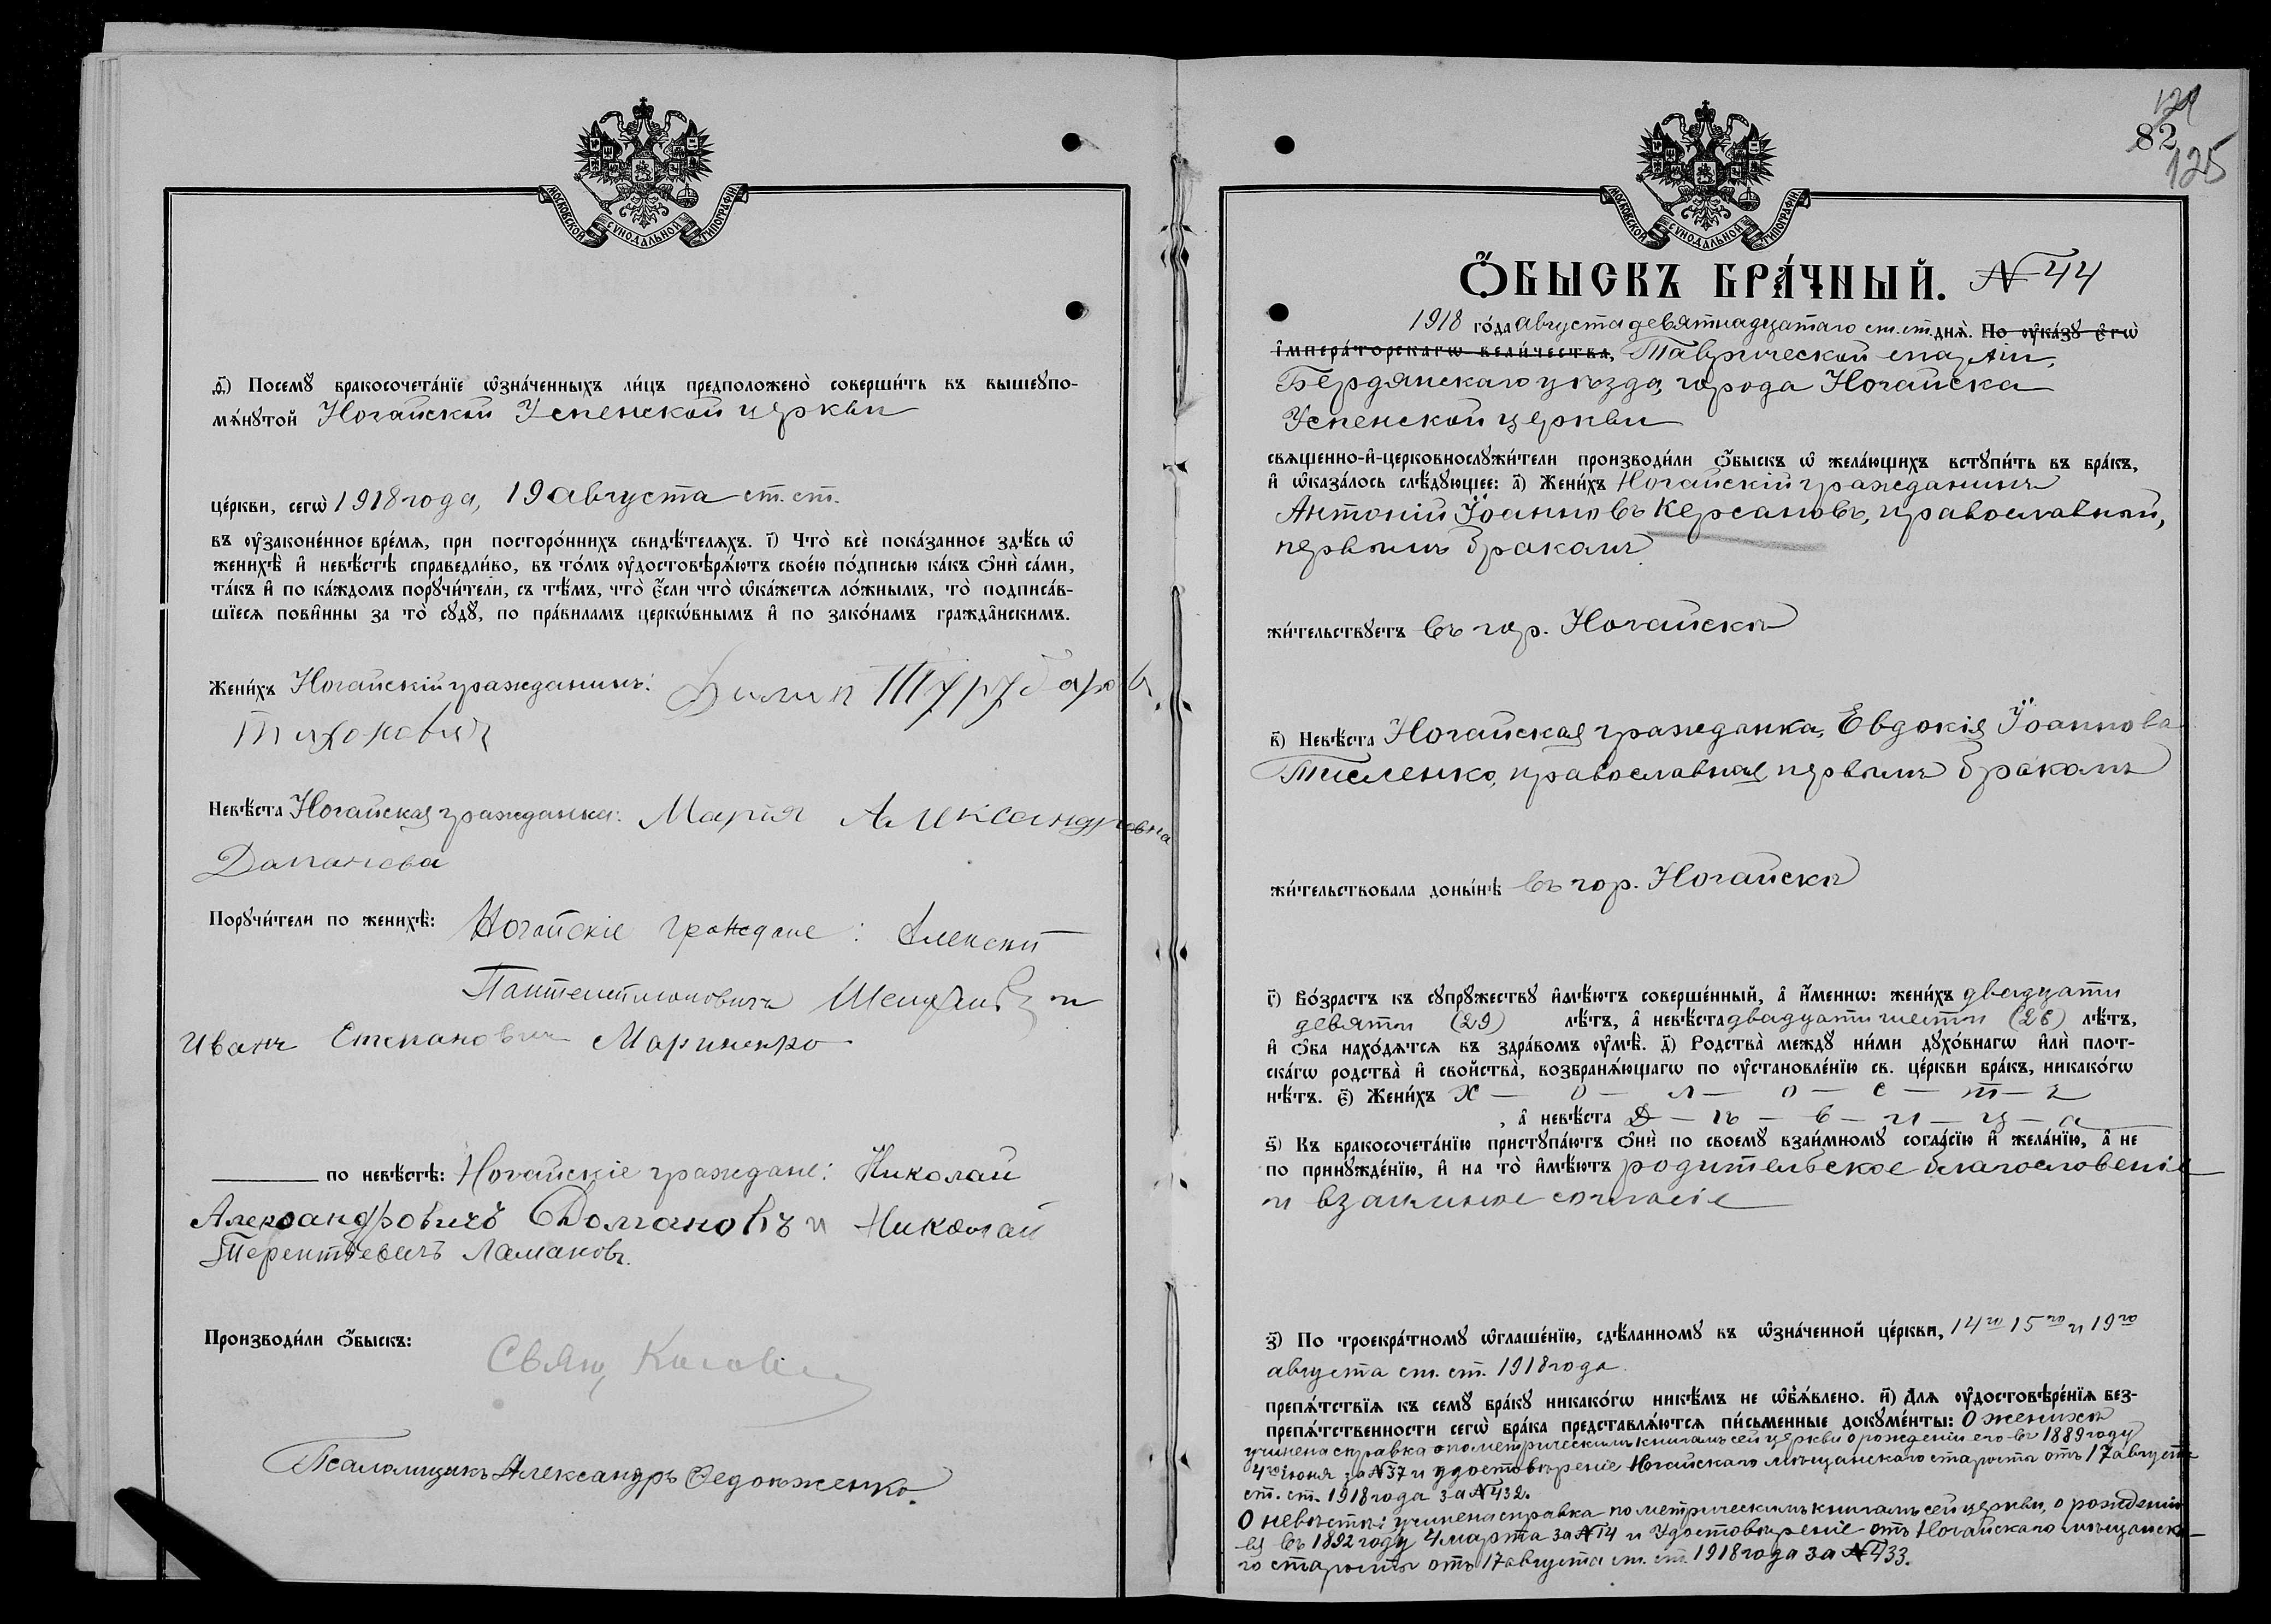 МОСКОВСКОЙ СѴНОДАЛЬНОЙ ТИПОГРАФІИ
д҃) Посемꙋ̀ бракосочета́нїе ѡ҆зна́ченныхъ ли́цъ предположено̀ соверши́ть въ вышеꙋпо-
мѧ́нꙋтой Ногайской Успенской церкви
це́ркви, сегѡ̀ 1918 года, 19 августа ст. ст.
въ ᲂу҆зако́ненное вре́мѧ, при посторо́ннихъ свидѣ́телѧхъ. і҃) Что̀ всѐ пока́занное здѣ́сь ѡ҆
женихѣ̀ и҆ невѣ́стѣ справедли́во, въ то́мъ ᲂу҆достовѣрѧ́ютъ свое́ю по́дписью ка́къ ѻ҆нѝ са́ми,
та́къ и҆ по ка́ждомъ порꙋчи́тели, съ тѣ́мъ, что̀ є҆́сли что̀ ѡ҆ка́жетсѧ ло́жнымъ, то̀ подписа́в-
шїесѧ пови́нны за то̀ сꙋдꙋ̀, по пра́виламъ церкѡ́внымъ и҆ по зако́намъ гражда́нскимъ.
Жени́хъ Ногайскій гражданинъ:
Невѣ́ста Ногайская гражданка: Марія Александровна
Порꙋчи́тели по женихѣ̀: Ногайскіе граждане: Алексей
Иванъ Степановичъ Мариненко
по невѣ́стѣ: Ногайскіе граждане: Николай
Александровичъ Долгановъ и Николай
Терентьевичъ Ламановъ.
Производи́ли ѻ҆́быскъ:
Свящ.
Псаломщикъ Александръ
124
82
125
МОСКОВСКОЙ СѴНОДАЛЬНОЙ ТИПОГРАФІИ
Ѻ҆́БЫСКЪ БРА́ЧНЫЙ. № 44
1918 го́да августа девятнадцатаго ст. ст. днѧ̀. По ᲂу҆ка́зꙋ є҆гѡ̀
і҆мпера́торскагѡ вели́чества, Таврической епархіи,
Бердянскаго уѣзда, города Ногайска
Успенской церкви
свѧщенно-и҆-церковнослꙋжи́тели производи́ли ѻ҆́быскъ ѡ҆ жела́ющихъ встꙋпи́ть въ бра́къ,
и҆ ѡ҆каза́лось слѣ́дꙋющее: а҃) Жени́хъ Ногайскій гражданинъ
Антоній Іоанновъ Керсановъ, православный,
первымъ бракомъ
жи́тельствꙋетъ въ гор. Ногайскѣ
в҃) Невѣ́ста Ногайская гражданка, Евдокія Іоаннова
Тисленко, православная первымъ бракомъ
жи́тельствовала доны́нѣ въ гор. Ногайскѣ
г҃) Во́зрастъ къ сꙋпрꙋ́жествꙋ и҆мѣ́ютъ соверше́нный, а҆ и҆́меннѡ: жени́хъ двадцати
девяти (29) лѣ́тъ, а҆ невѣ́ста двадцати шести (26) лѣ́тъ,
и҆ ѻ҆́ба нахо́дѧтсѧ въ здра́вомъ ᲂу҆мѣ̀. д҃) Родства̀ междꙋ̀ ни́ми дꙋхо́внагѡ и҆лѝ плот-
ска́гѡ родства̀ и҆ свойства̀, возбранѧ́ющагѡ по ᲂу҆становле́нїю св. це́ркви бра́къ, никако́гѡ
нѣ́тъ. є҃) Жени́хъ Х — о — л — о — с — т — ъ
, а҆ невѣ́ста Д — ѣ — в — и — ц — а
ѕ҃) Къ бракосочета́нїю пристꙋпа́ютъ ѻ҆нѝ по своемꙋ̀ взаи́мномꙋ согла́сїю и҆ жела́нїю, а҆ не
по принꙋжде́нїю, и҆ на то̀ и҆мѣ́ютъ родительское благословеніе
и взаимное согласіе
з҃) По троекра́тномꙋ ѡ҆глаше́нїю, сдѣ́ланномꙋ въ ѡ҆зна́ченной це́ркви, 14го 15го и 19го
августа ст. ст. 1918 года.
препѧ́тствїѧ къ семꙋ̀ бра́кꙋ никако́гѡ никѣ́мъ не ѡ҆б̾ѧ́влено. и҃) Длѧ ᲂу҆достовѣре́нїѧ без-
препѧ́тственности сегѡ̀ бра́ка представлѧ́ютсѧ пи́сьменные докꙋме́нты: О женихѣ
учинена справка по метрическимъ книгамъ сей церкви о рожденіи его въ 1889 году
4го іюня за № 37 и удостовѣреніе Ногайскаго мѣщанскаго старосты отъ 17 августа
ст. ст. 1918 года за № 432.
О невѣстѣ: учинена справка по метрическимъ книгамъ сей церкви, о рожденіи
ея въ 1892 году 4 марта за № 14 и удостовѣреніе отъ Ногайскаго мѣщанска-
го старосты отъ 17 августа ст. ст. 1918 года за № 433.